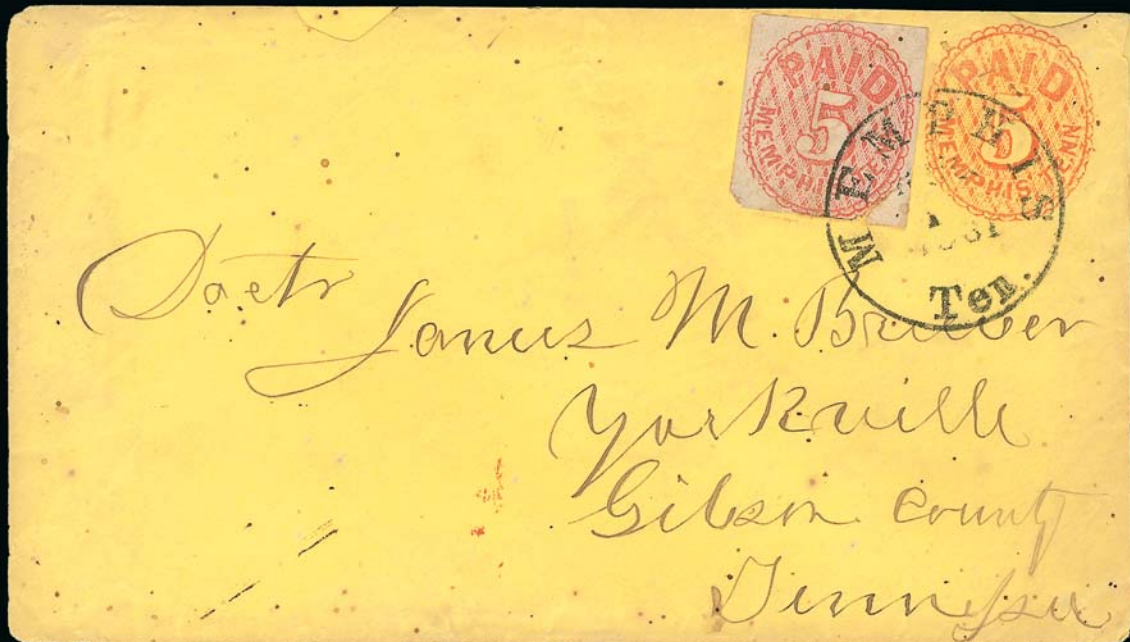 PAID
5
MEMPHIS TENN
PAID
5
MEMPHIS TENN
MEMPHIS
1861
Ten.
Doctr
James M. Brewer
Yorkville
Gibson County
Tennessee